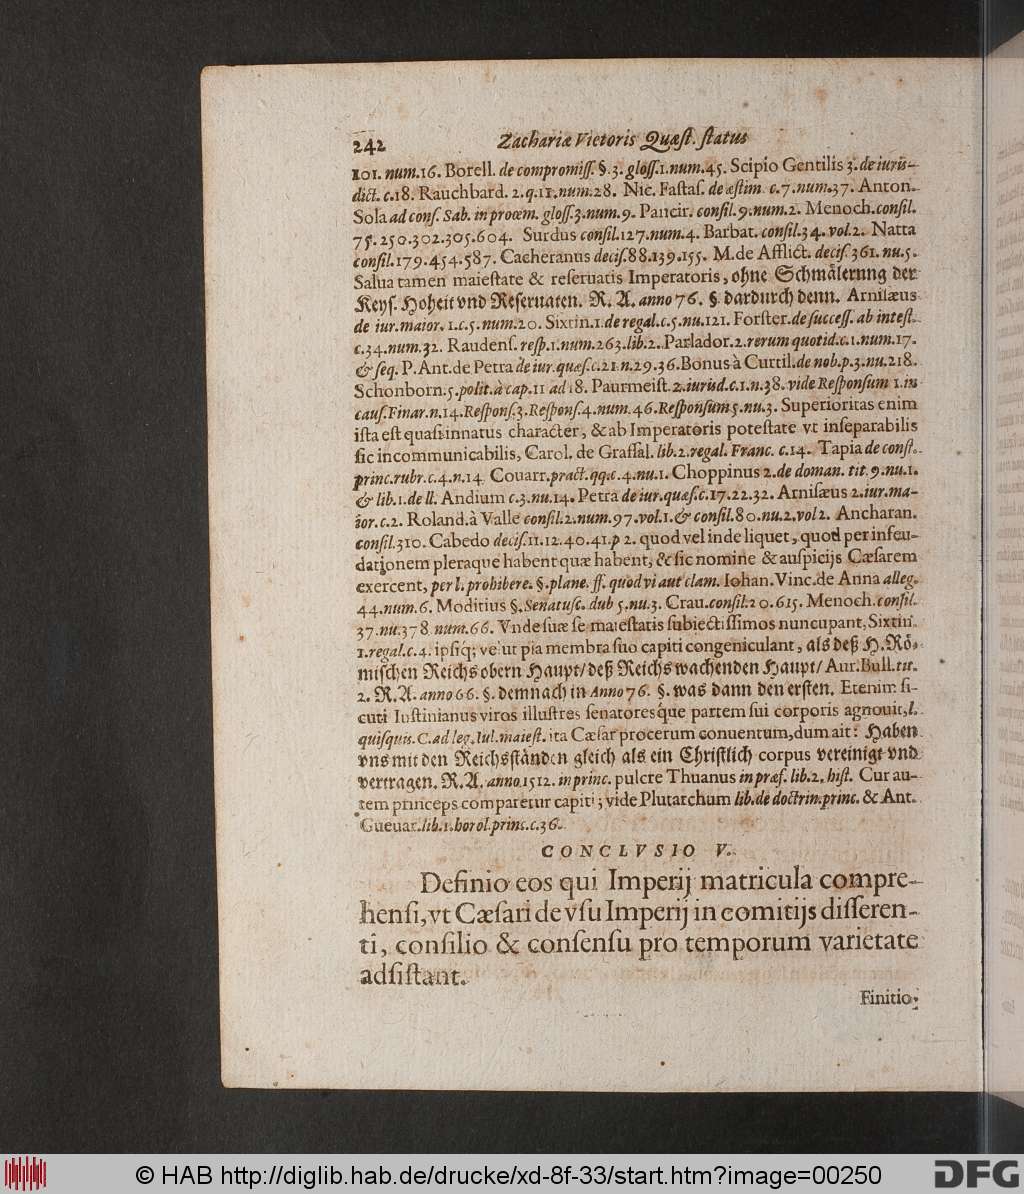 242 Zachariæ Vietoris Quæst. status
101. num.16. Borell. de compromiss. §.3. gloss.1.num.45. Scipio Gentilis 3. de iuris-
dict. c.18. Rauchbard. 2.q.11.num.28. Nic. Fastas. de æstim. c.7.num.37. Anton.
Sola ad cons. Sab. in proœm. gloss.3.num.9. Pancir. consil.9.num.2. Menoch. consil.
75.250.302.305.604. Surdus consil.127.num.4. Barbat. consil.34.vol.2. Natta
consil.179.454.587. Cacheranus decis.88.139.155. M. de Afflict. decis.361.nu.5.
Salua tamen maiestate & reseruatis Imperatoris, ohne Schmälerung der
Keys. Hoheit vnd Reseruaten. R. A. anno 76. § dardurch denn. Arnisæus
de iur. maior. 1.c.5.num.20. Sixtin.1.de regal.c.5.nu.121. Forster. de success. ab intest.
c.34.num.32. Raudens. resp.1.num.263.lib.2. Parlador.2.rerum quotid.c.1.num.17.
& seq. P. Ant. de Petra de iur. quæs.c.21.n.29.36. Bonus à Curtil. de nob.p.3.nu.218.
Schonborn.5.polit. à cap.11 ad 18. Paurmeist.2.iurisd.c.1.n.38. vide Responsum 1. in
caus. Finar.n.14.Respons.3.Respons.4.num.46.Responsum 5.nu.3. Superioritas enim
ista est quasi innatus character, & ab Imperatoris potestate vt inseparabilis
sic incommunicabilis, Carol. de Grassal. lib.2.regal. Franc. c.14. Tapia de const.
princ.rubr.c.4.n.14 Couarr.pract.qq.c.4.nu.1. Choppinus 2. de doman. tit.9.nu.1.
& lib.1.de ll. Andium c.3.nu.14. Petra de iur.quæs.c.17.22.32. Arnisæus 2.iur.ma-
ior.c.2. Roland. à Valle consil.2.num.97.vol.1. & consil.80.nu.2.vol 2. Ancharan.
consil.310. Cabedo decis.11.12.40.41.p 2. quod vel inde liquet, quod per infeu-
dationem pleraque habent quæ habent, & sic nomine & auspicijs Cæsarem
exercent, per l. prohibere. §. plane. ff. quod vi aut clam. Iohan. Vinc. de Anna alleg.
44.num.6. Moditius §. Senatusc. dub 5.nu.3. Crau. consil.20.615. Menoch. consil.
37.nu.378 num.66. Vnde suæ se maiestatis subiectissimos nuncupant, Sixtin.
1.regal.c.4. ipsiq; velut pia membra suo capiti congeniculant, als deß H. Rö-
mischen Reichs obern Haupt/ deß Reichs wachenden Haupt/ Aur. Bull. tit.
2. R. A. anno 66. §. demnach in Anno 76. §. was dann den ersten. Etenim si-
cuti Iustinianus viros illustres senatoresque partem sui corporis agnouit, l.
quisquis. C. ad leg. Iul. maiest. ita Cæsar procerum conuentum, dum ait: Haben
vns mit den Reichsständen gleich als ein Christlich corpus vereinigt vnd
vertragen. R. A. anno 1512. in princ. pulcre Thuanus in præf. lib.2. hist. Cur au-
tem princeps comparetur capiti; vide Plutarchum lib. de doctrin. princ. & Ant.
Gueuar. lib.1. horol. princ.c.36.
CONCLVSIO V.
Definio eos qui Imperij matricula compre-
hensi, vt Cæsari de vsu Imperij in comitijs differen-
ti, consilio & consensu pro temporum varietate
adsistant.
Finitio:
© HAB http://diglib.hab.de/drucke/xd-8f-33/start.htm?image=00250
DFG